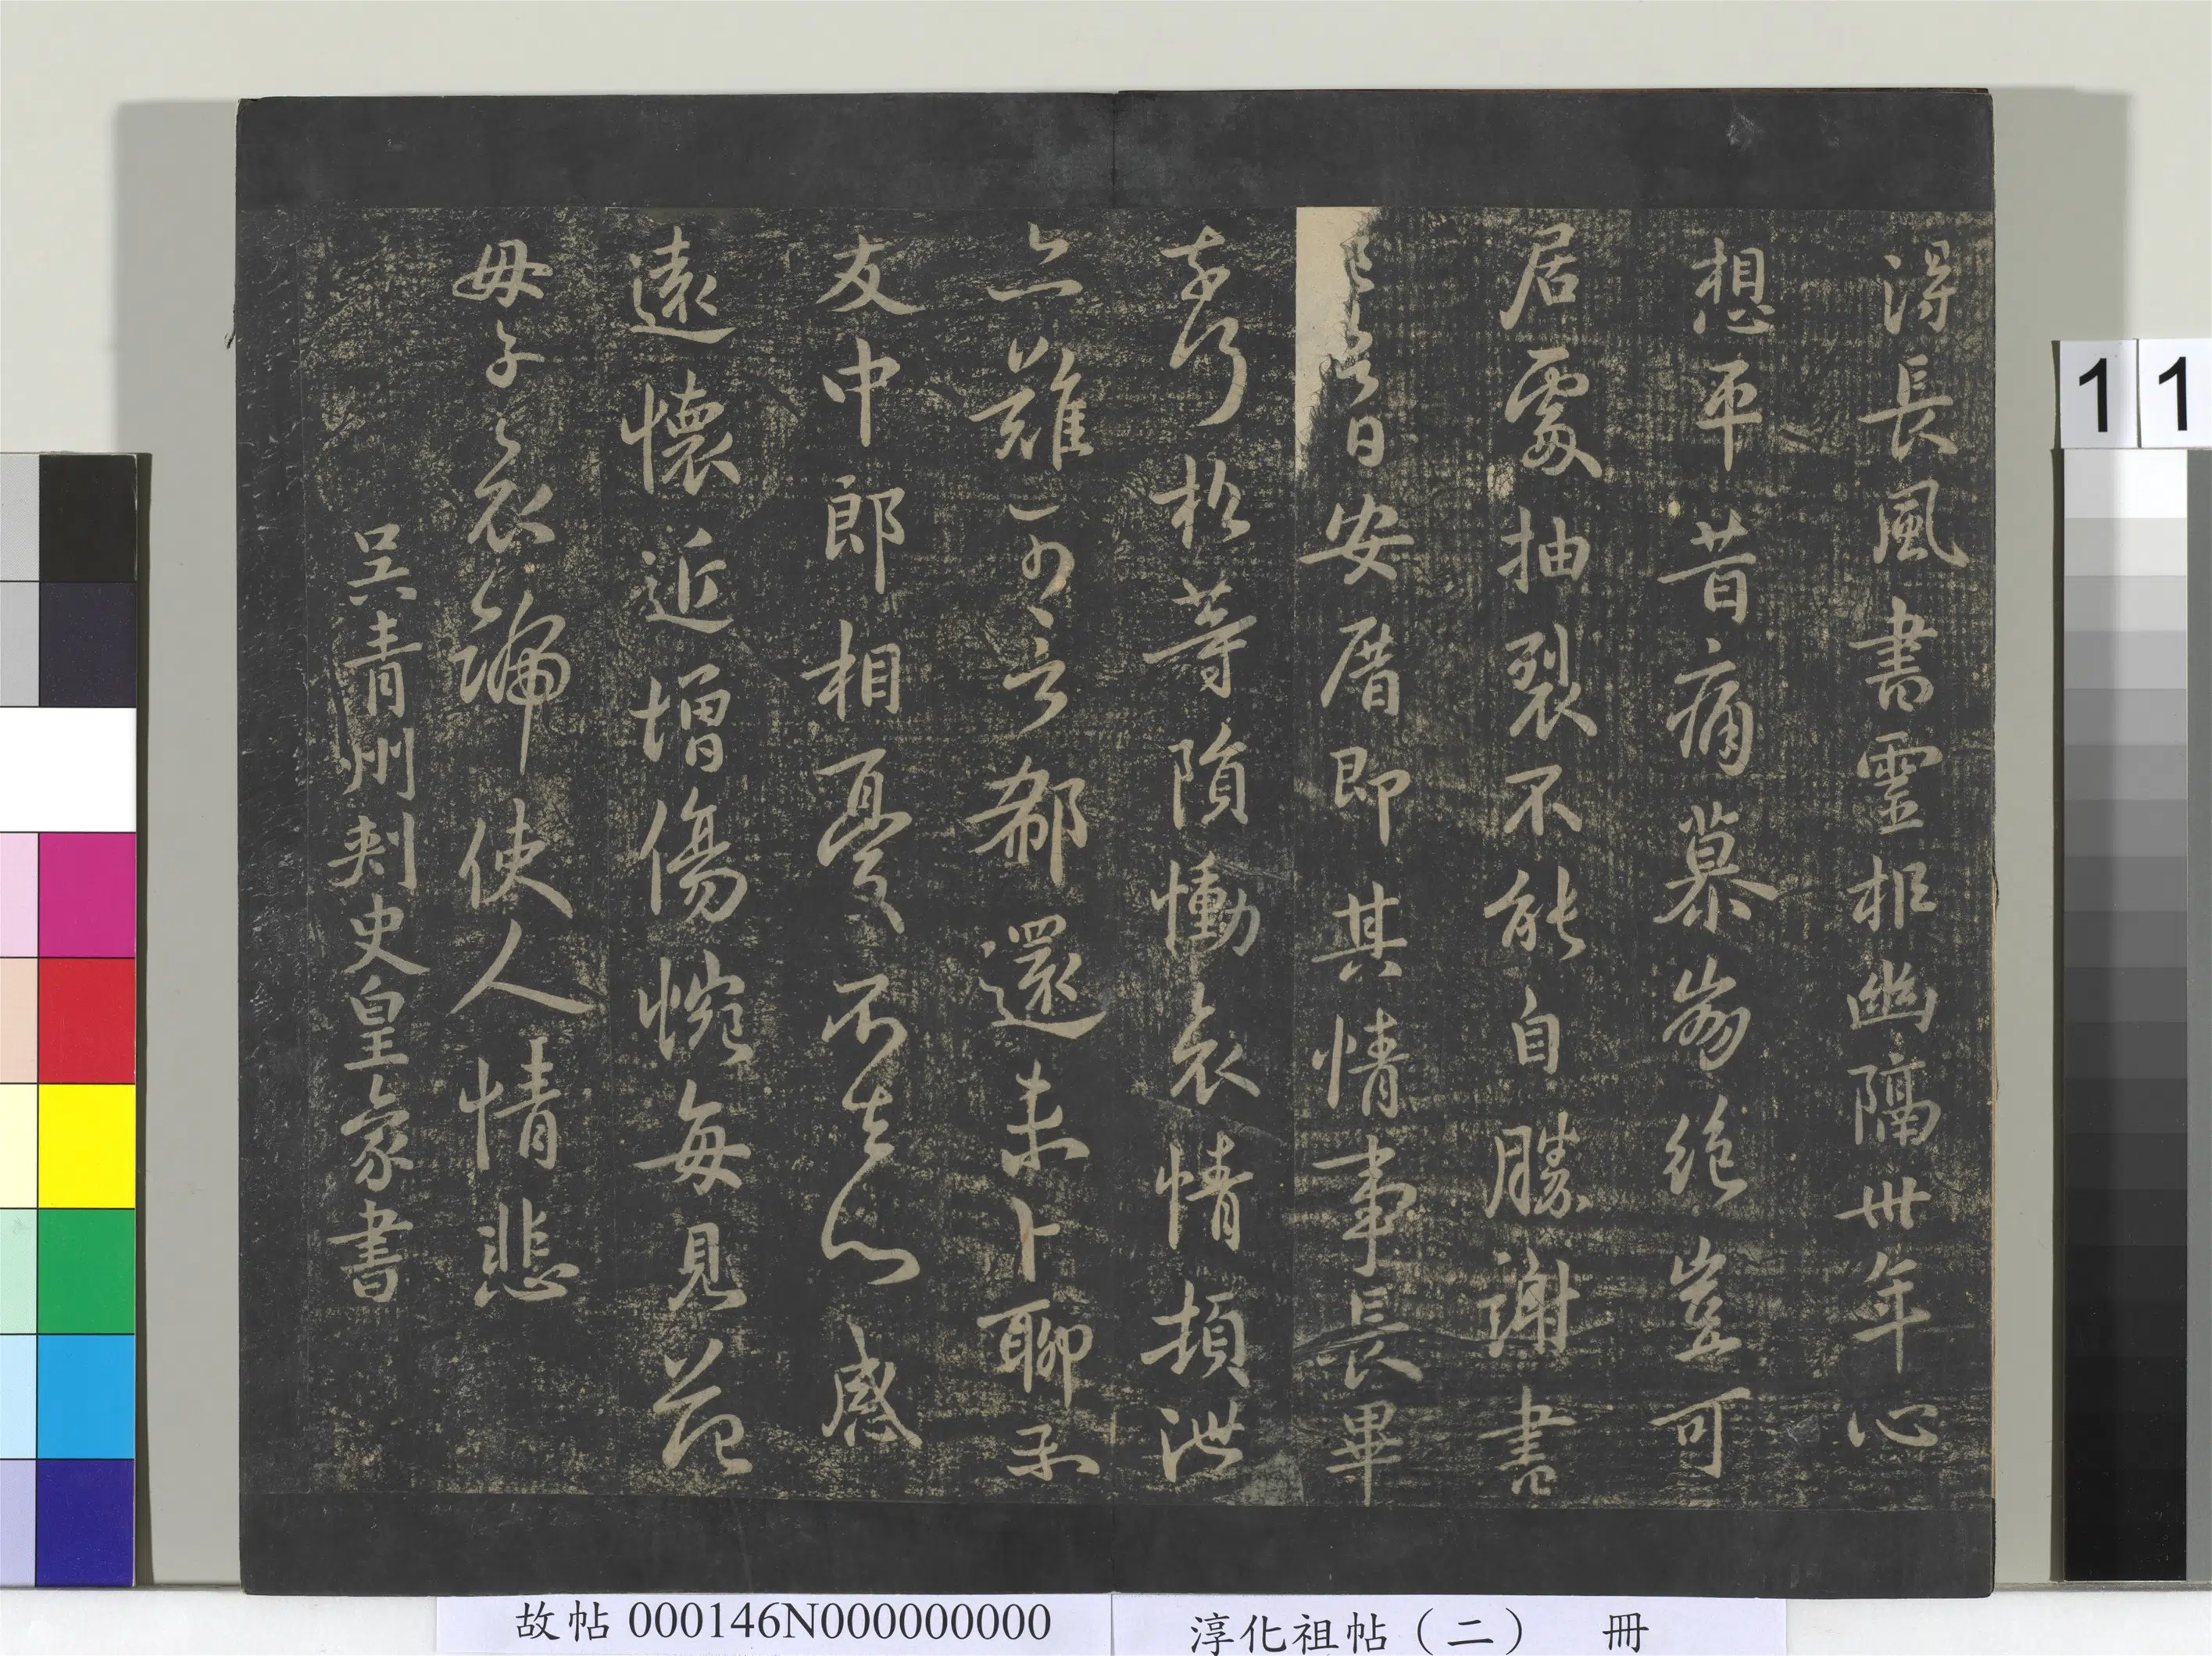 得長風書靈柩幽隔卅年心
想平昔痛慕崩絕豈可
居處抽裂不能自勝謝書
已吉日安厝即其情事長畢
去行松等隕慟哀情頓泄
亦難可言郗還未卜聊示
友中郎相憂不去心感
遠懷近增傷惋每見范
母子哀號使人情悲
吳青州刺史皇象書
1 1
故帖 000146N000000000
淳化祖帖（二） 冊